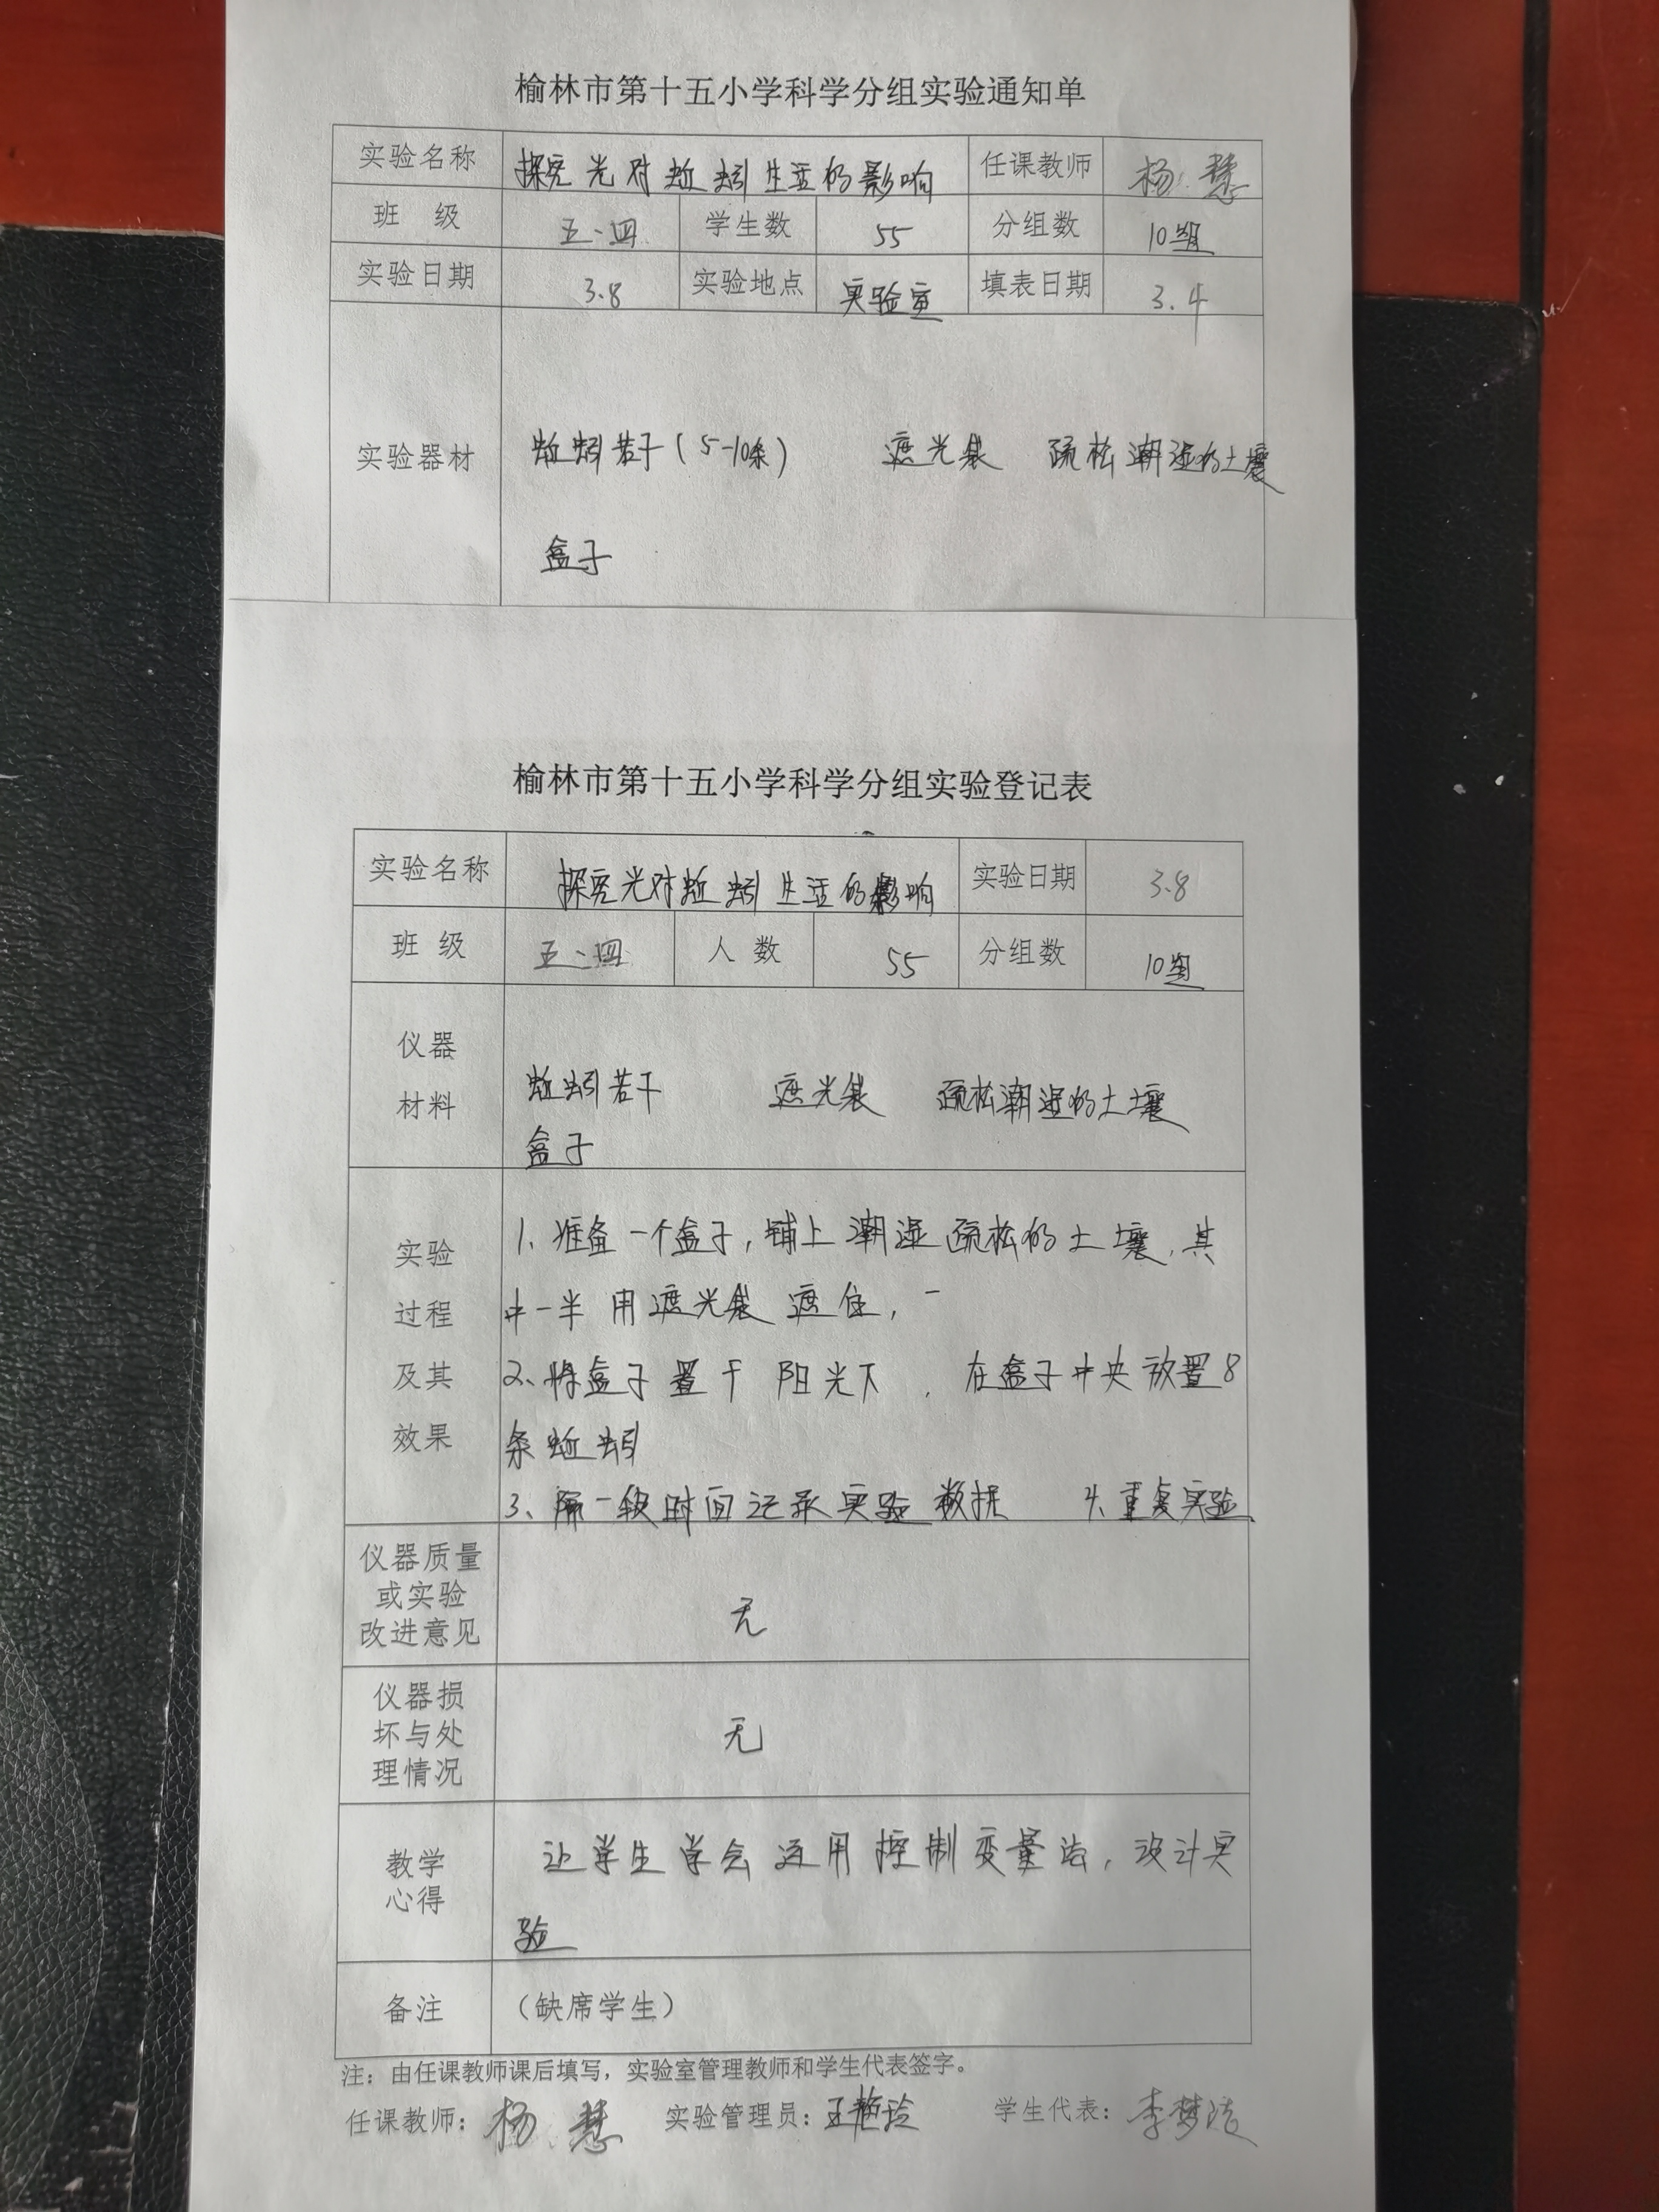 榆林市第十五小学科学分组实验通知单
实验名称 探究光对蚯蚓生活的影响 任课教师 杨慧
班 级 五、四 学生数 55 分组数 10组
实验日期 3.8 实验地点 实验室 填表日期 3.4
实验器材 蚯蚓若干(5-10条) 遮光袋 疏松潮湿的土壤
盒子
榆林市第十五小学科学分组实验登记表
实验名称 探究光对蚯蚓生活的影响 实验日期 3.8
班 级 五、四 人 数 55 分组数 10组
仪器
材料
蚯蚓若干 遮光袋 疏松潮湿的土壤
盒子
实验
过程
及其
效果
1、准备一个盒子,铺上潮湿疏松的土壤,其
中一半用遮光袋遮住,
2、将盒子置于阳光下,在盒子中央放置8
条蚯蚓
3、隔一段时间记录实验数据 4、重复实验
仪器质量
或实验
改进意见
无
仪器损
坏与处
理情况
无
教学
心得
让学生学会运用控制变量法,设计实
验
备注 (缺席学生)
注:由任课教师课后填写,实验室管理教师和学生代表签字。
任课教师:杨慧 实验管理员:王艳玲 学生代表:李梦